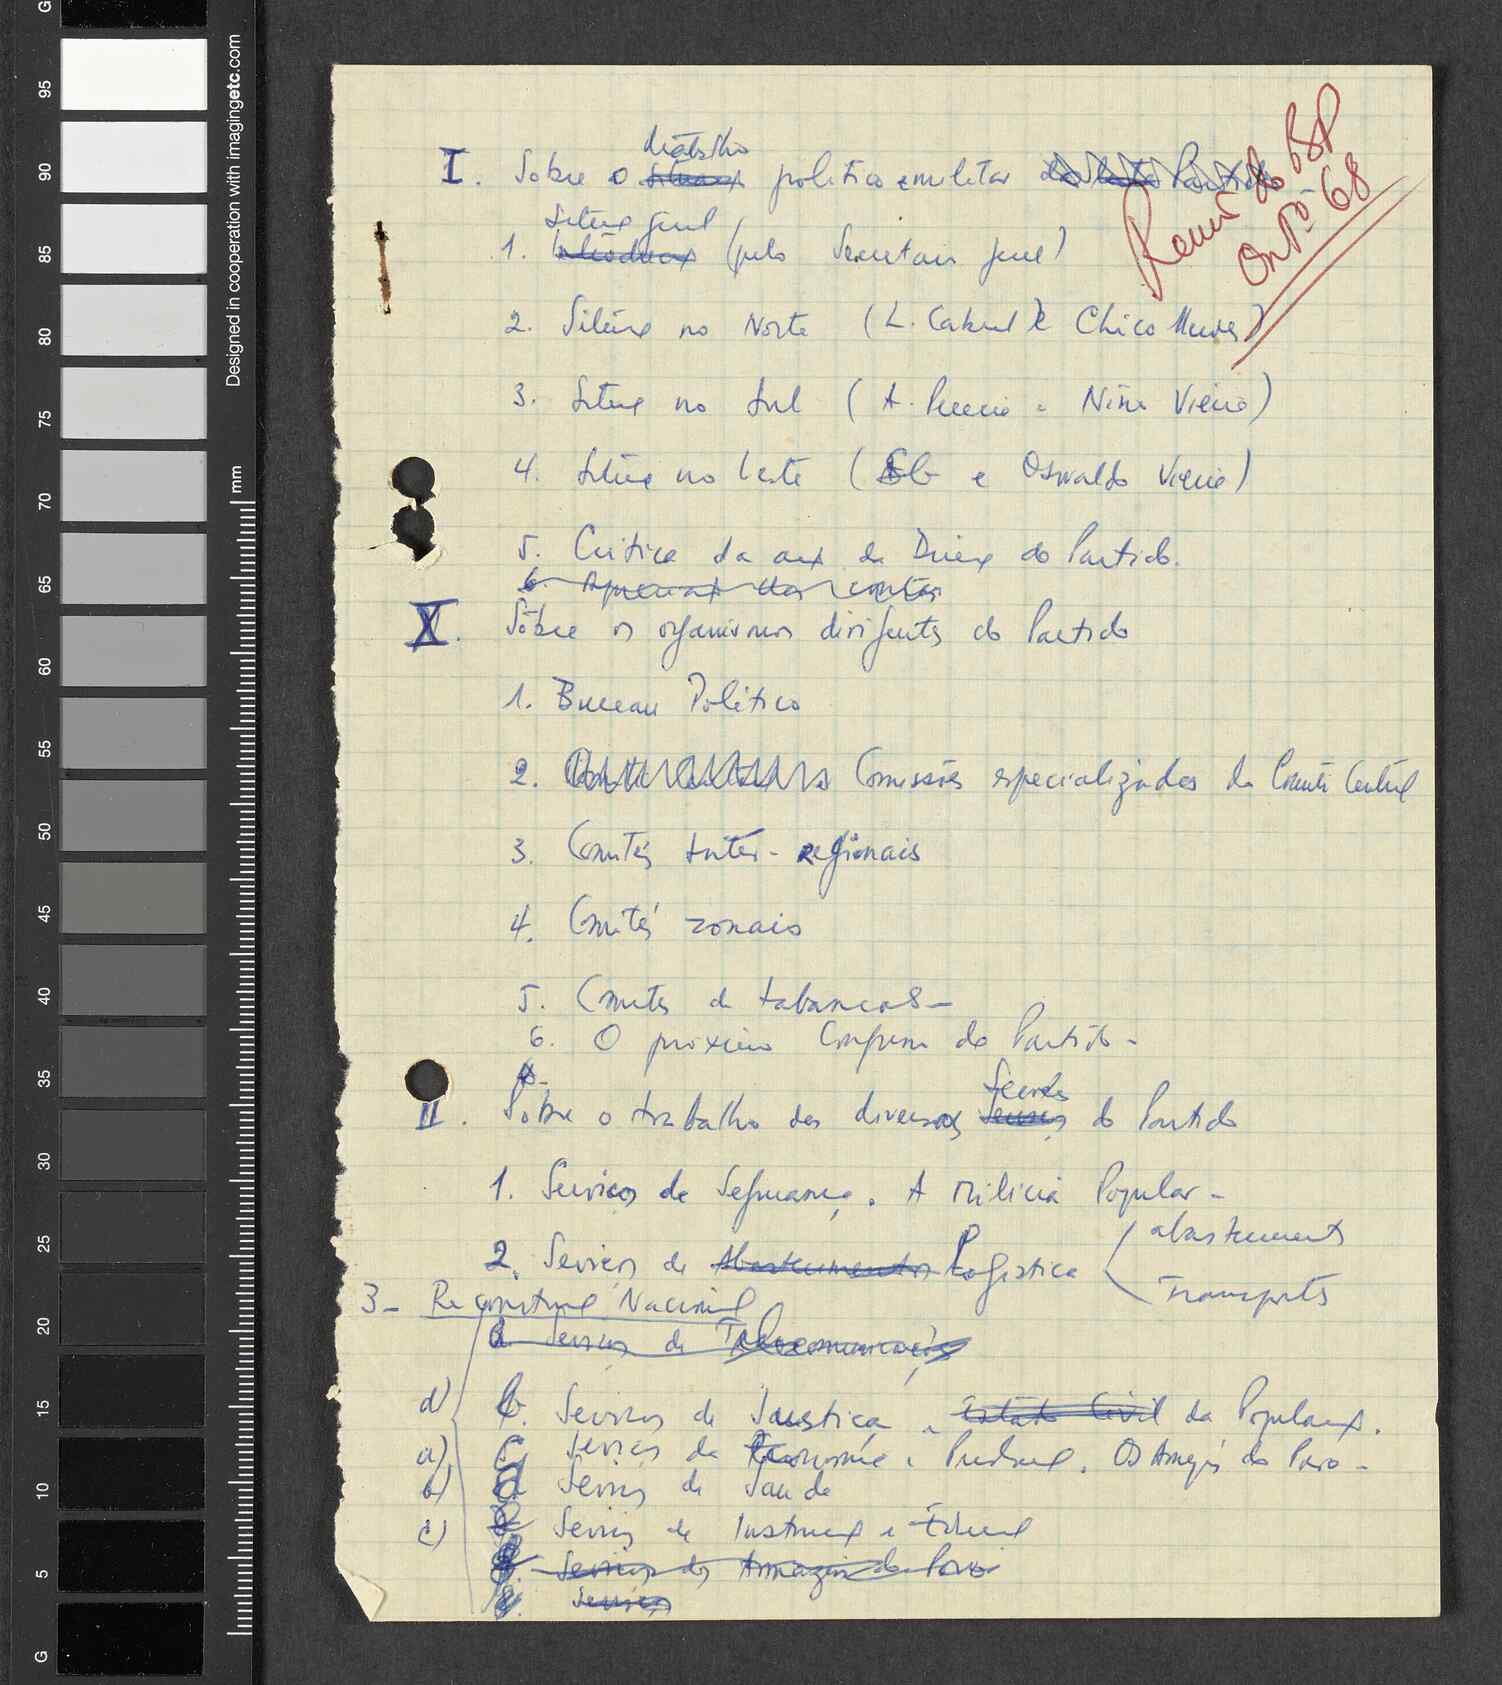 Reunião do BP
Out.º 68
trabalho
I. Sobre o político e militar do Partido
Situação geral
1. (pelo Secretário geral)
2. Situação no Norte (L. Cabral e Chico Mendes)
3. Situação no Sul (A. Pereira e Nino Vieira)
4. Situação no Leste (e Osvaldo Vieira)
5. Crítica da acção da Direcção do Partido.
6. Apreciação das contas
X. Sobre os organismos dirigentes do Partido
1. Bureau Político
2. Comissões especializadas do Comité Central
3. Comités Inter-regionais
4. Comités zonais
5. Comités de tabancas -
6. O próximo Congresso do Partido -
6.
II. Sobre o trabalho dos diversos Serviços do Partido
1. Serviços de Segurança. A Milícia Popular -
abastecimento
2. Serviços de Abastecimentos Logística
Transportes
3 - Reconstrução Nacional
a. Serviços de Telecomunicações
d) b. Serviços de Justiça e Estado Civil da População.
a) c. Serviços de Economia e Produção. Os Armazéns do Povo -
b) d Serviços de Saúde
c) Serviços de Instrução e Educação
Serviços dos Armazéns do Povo
Serviços
Designed in cooperation with imagingetc.com
mm
G 95 90 85 80 75 70 65 60 55 50 45 40 35 30 25 20 15 10 5 G